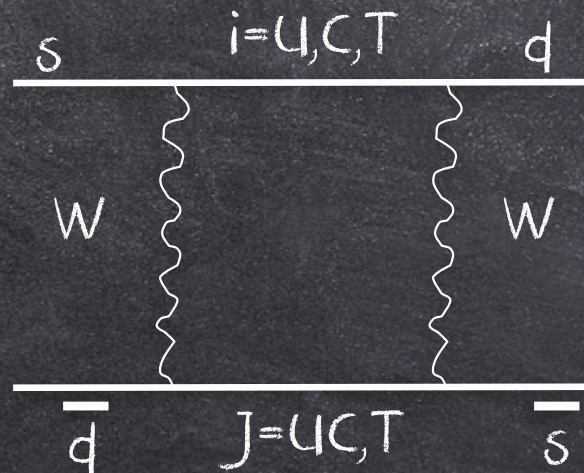 s i=U,C,T d
W W
d̅ J=UC,T s̅